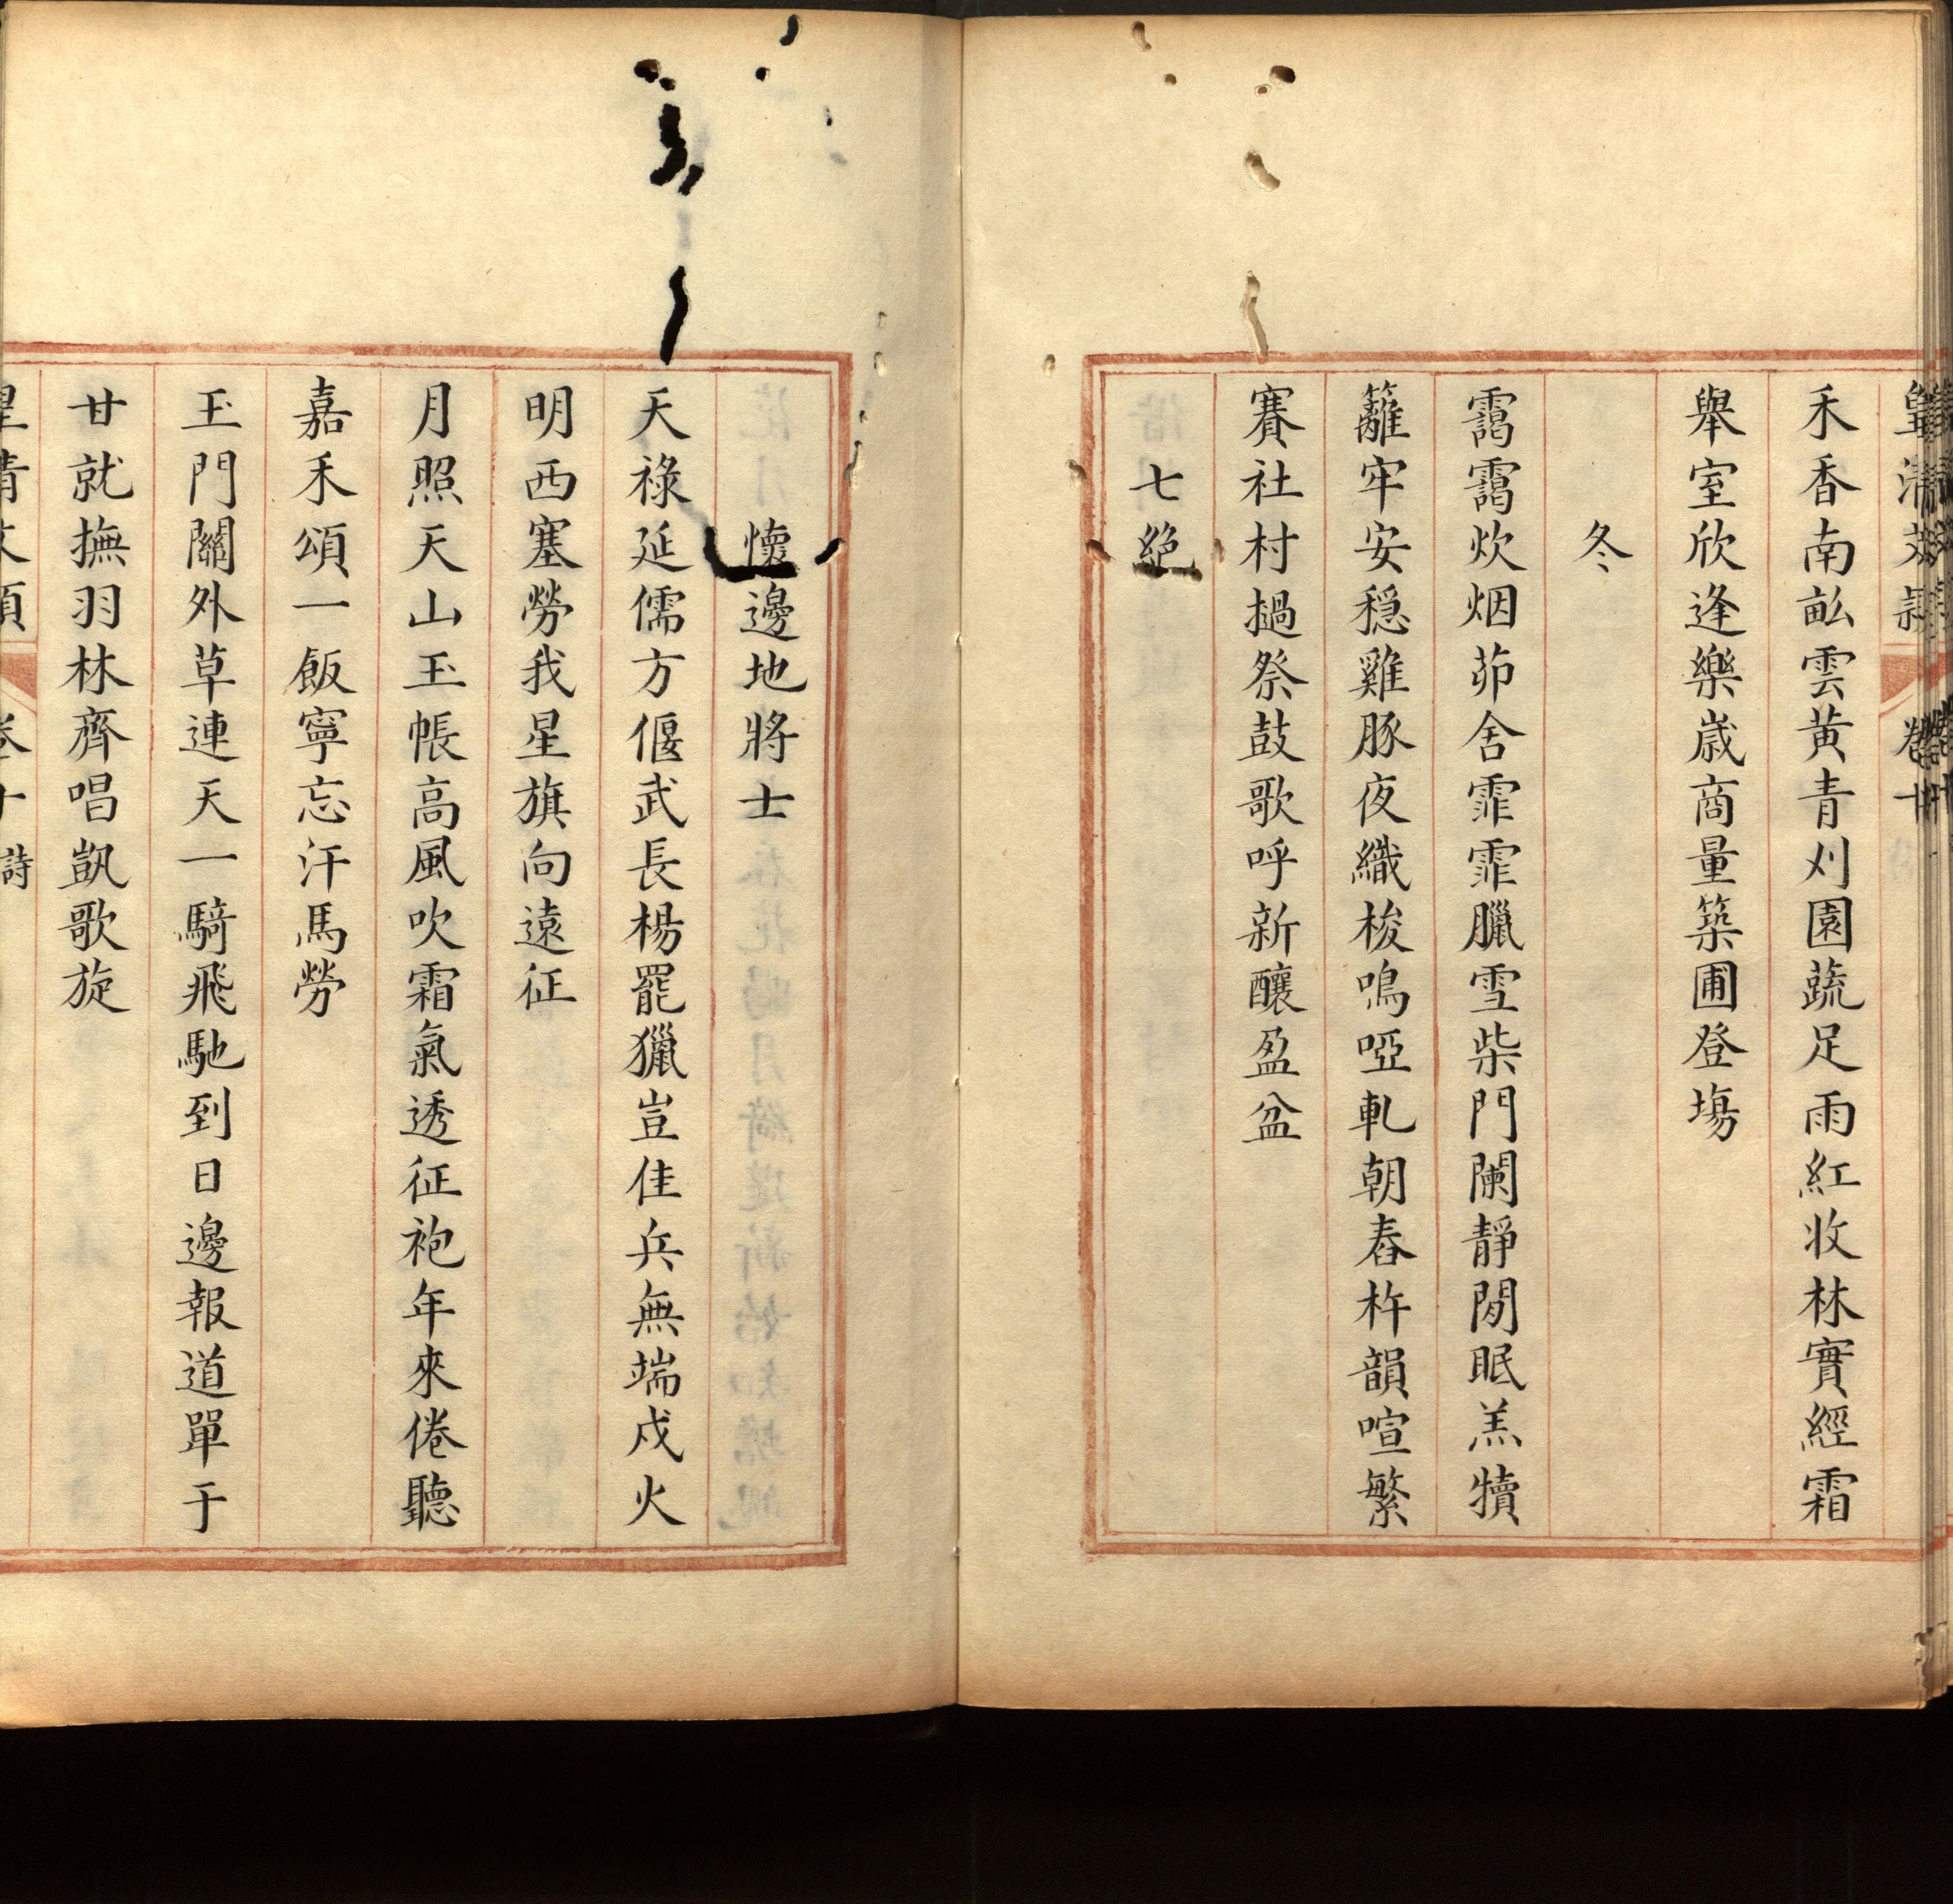 皇清文穎 卷十
禾香南畝雲黃青刈園蔬足雨紅收林實經霜
舉室欣逢樂歲商量築圃登場
冬
靄靄炊烟茆舍霏霏臘雪柴門闌靜閒眠羔犢
籬牢安穩雞豚夜織梭鳴啞軋朝舂杵韻喧繁
賽社村撾祭鼓歌呼新釀盈盆
七絕
懷邊地將士
天祿延儒方偃武長楊罷獵豈佳兵無端戍火
明西塞勞我星旗向遠征
月照天山玉帳高風吹霜氣透征袍年來倦聽
嘉禾頌一飯寧忘汗馬勞
玉門關外草連天一騎飛馳到日邊報道單于
甘就撫羽林齊唱凱歌旋
皇清文穎 卷十 詩